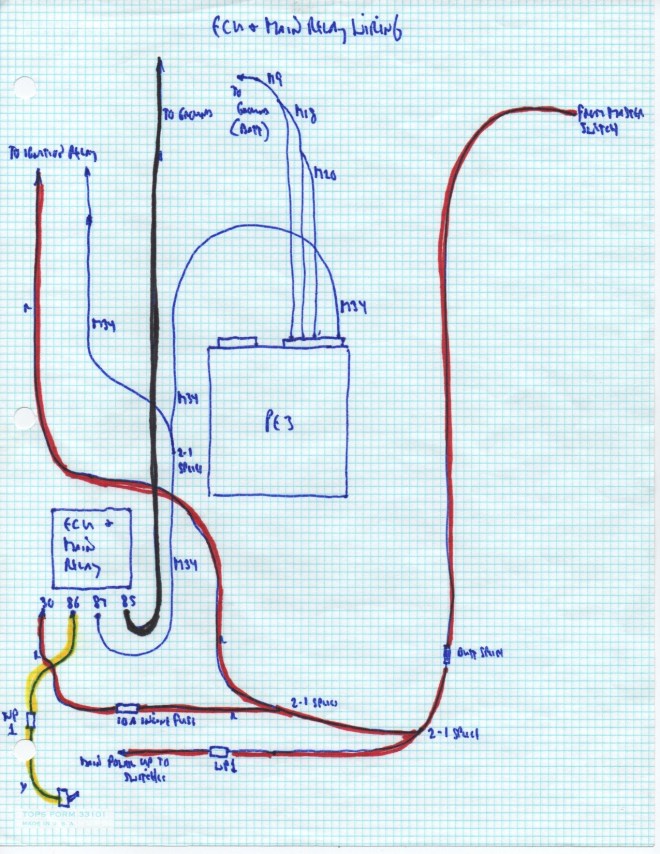 ECU & MAIN RELAY WIRING
M9
TO
GROUND
(BATT)
M18
FROM MASTER
SWITCH
TO GROUND
TO IGNITION RELAY
M20
R
M34
M34
M34
PE3
2-1
SPLICE
ECU &
MAIN
RELAY
M34
30 86 87 85
R
R
BUTT SPLICE
WP
1
10A INLINE FUSE
R
2-1 SPLICE
2-1 SPLICE
MAIN POWER UP TO
SWITCHES
WP1
Y
TOPS FORM 33101
MADE IN U.S.A.